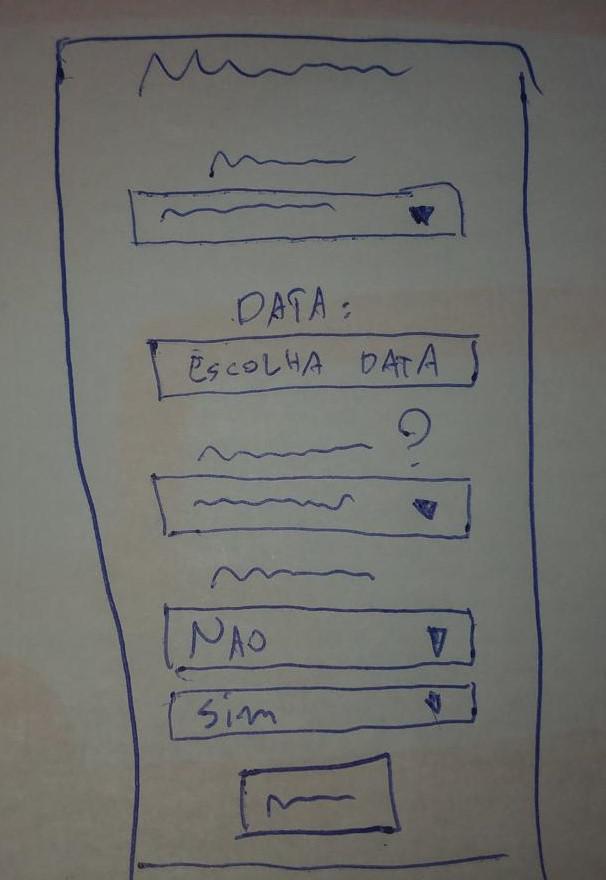 DATA:
ESCOLHA DATA
?
NAO
Sim